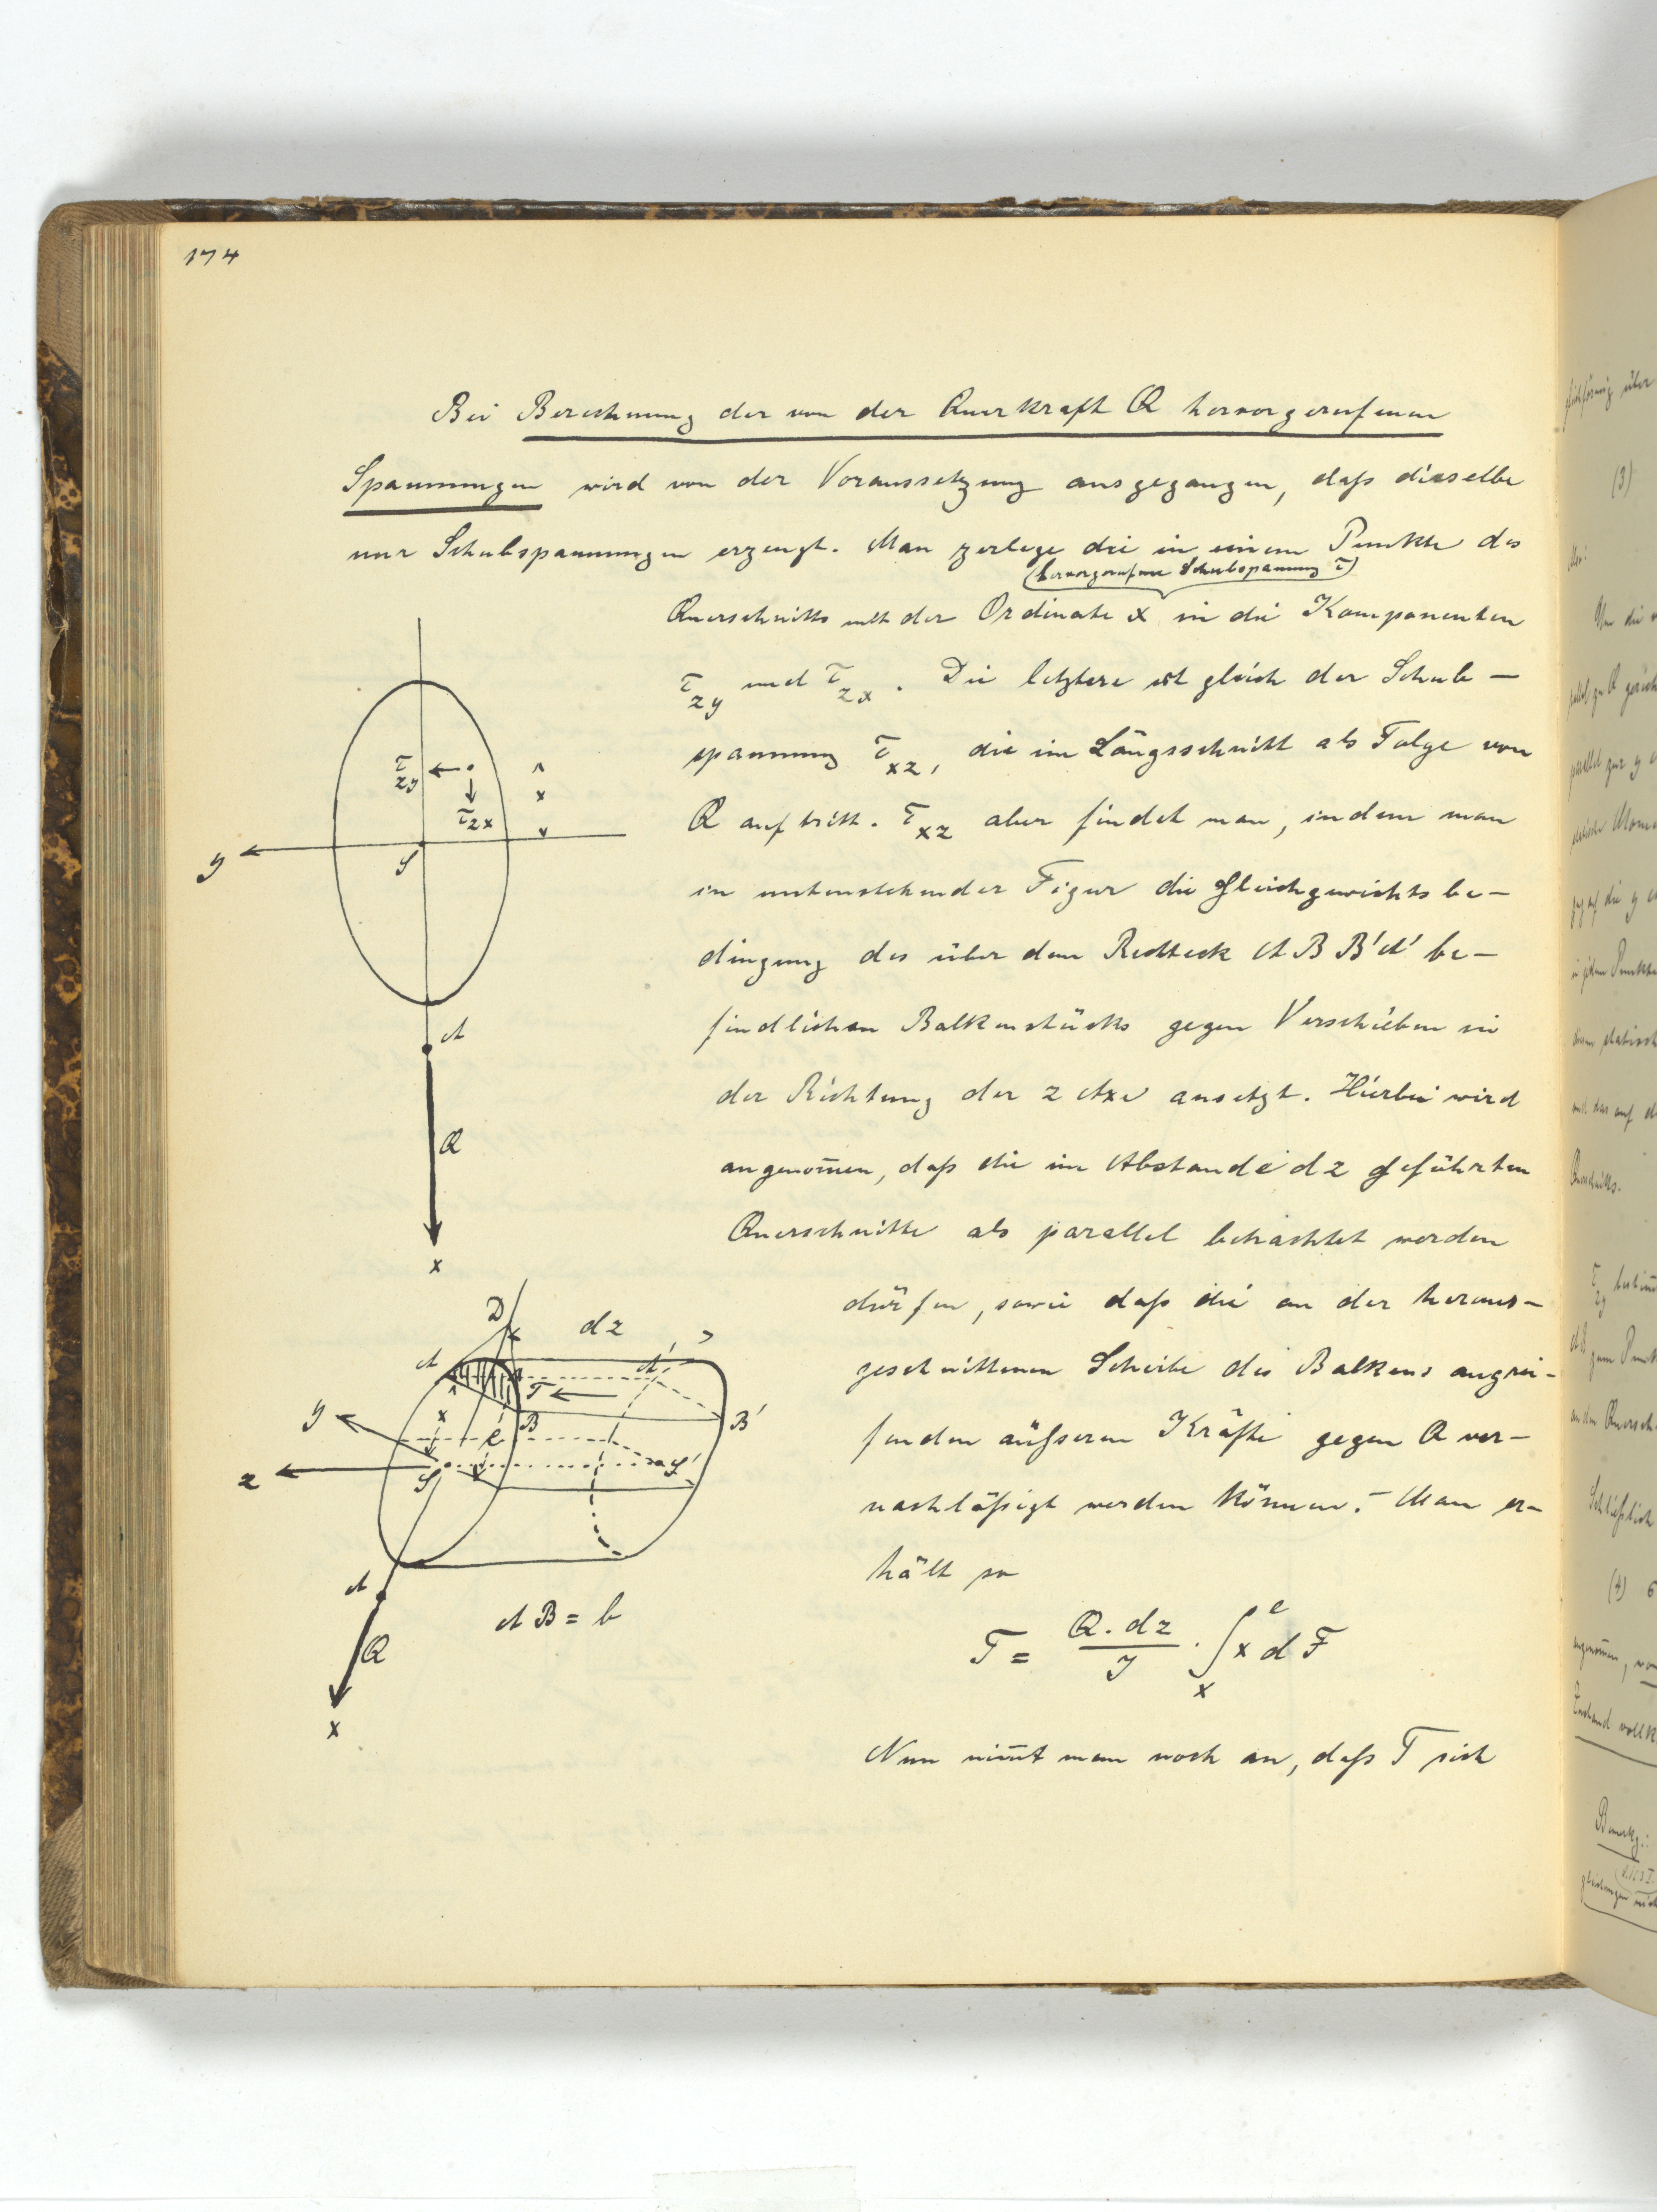 174
Bei Berechnung der von der Querkraft Q hervorgerufenen
Spannungen wird von der Voraussetzung ausgegangen, daß dieselbe
nur Schubspannungen erzeugt. Man zerlege die in einem Punkte des
(hervorgerufene Schubspannung τ)
Querschnitts mit der Ordinate x in die Komponenten
τzy und τzx. Die letztere ist gleich der Schub-
spannung τxz, die im Längsschnitt als Folge von
Q auftritt. τxz aber findet man, indem man
in untenstehender Figur die Gleichgewichtsbe-
dingung des über dem Rechteck A B B' A' be-
findlichen Balkenstücks gegen Verschieben in
der Richtung der z Axe ansetzt. Hierbei wird
angenom̄en, daß die im Abstande dz geführten
Querschnitte als parallel betrachtet werden
dürfen, sowie daß die an der heraus-
geschnittenen Scheibe des Balkens angrei-
fenden äußeren Kräfte gegen Q ver-
nachläßigt werden können. – Man er-
hält so
T = Q. dz / J · ∫ₓᵉ x dF
Nun nim̄t man noch an, daß T sich
τzy
τzx
x
y
S
A
Q
x
D
dz
A
A'
T
B
B'
x
e
y
z
S
S'
A
Q
x
AB = b
(3)
(4)